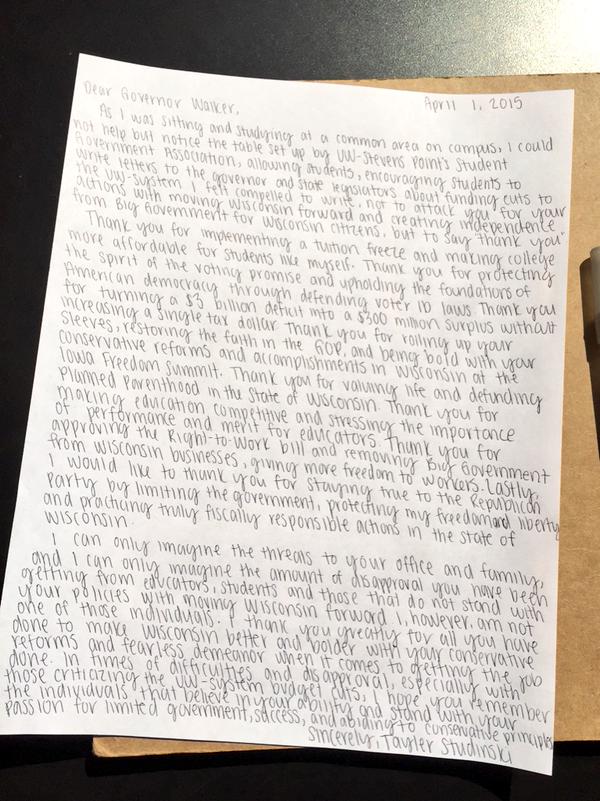 Dear Governor Walker, April 1, 2015
As I was sitting and studying at a common area on campus, I could
not help but notice the table set up by UW-Stevens Point's Student
Government Association, allowing students, encouraging students to
write letters to the governor and state legislators about funding cuts to
the UW-system. I felt compelled to write, not to attack you for your
actions with moving Wisconsin forward and creating independence
from Big Government for Wisconsin citizens, but to say thank you.
Thank you for implementing a tuition freeze and making college
more affordable for students like myself. Thank you for protecting
the spirit of the voting promise and upholding the foundations of
American democracy through defending voter ID laws. Thank you
for turning a $3 billion deficit into a $300 million surplus without
increasing a single tax dollar. Thank you for rolling up your
sleeves, restoring the faith in the GOP, and being bold with your
conservative reforms and accomplishments in Wisconsin at the
Iowa Freedom Summit. Thank you for valuing life and defunding
Planned Parenthood in the State of Wisconsin. Thank you for
making education competitive and stressing the importance
of performance and merit for educators. Thank you for
approving the Right-to-Work bill and removing Big Government
from Wisconsin businesses, giving more freedom to workers. Lastly,
I would like to thank you for staying true to the Republican
party by limiting the government, protecting my freedom and liberty
and practicing truly fiscally responsible actions in the state of
Wisconsin.
I can only imagine the threats to your office and family,
and I can only imagine the amount of disapproval you have been
getting from educators, students and those that do not stand with
your policies with moving Wisconsin forward. I, however, am not
one of those individuals. I thank you greatly for all you have
done to make Wisconsin better and bolder with your conservative
reforms and fearless demeanor when it comes to getting the job
done. In times of difficulties and disapproval, especially with
those criticizing the UW-system budget cuts, I hope you remember
the individuals that believe in your ability and stand with your
passion for limited government, success, and abiding to conservative principles.
Sincerely, Tayler Studinski